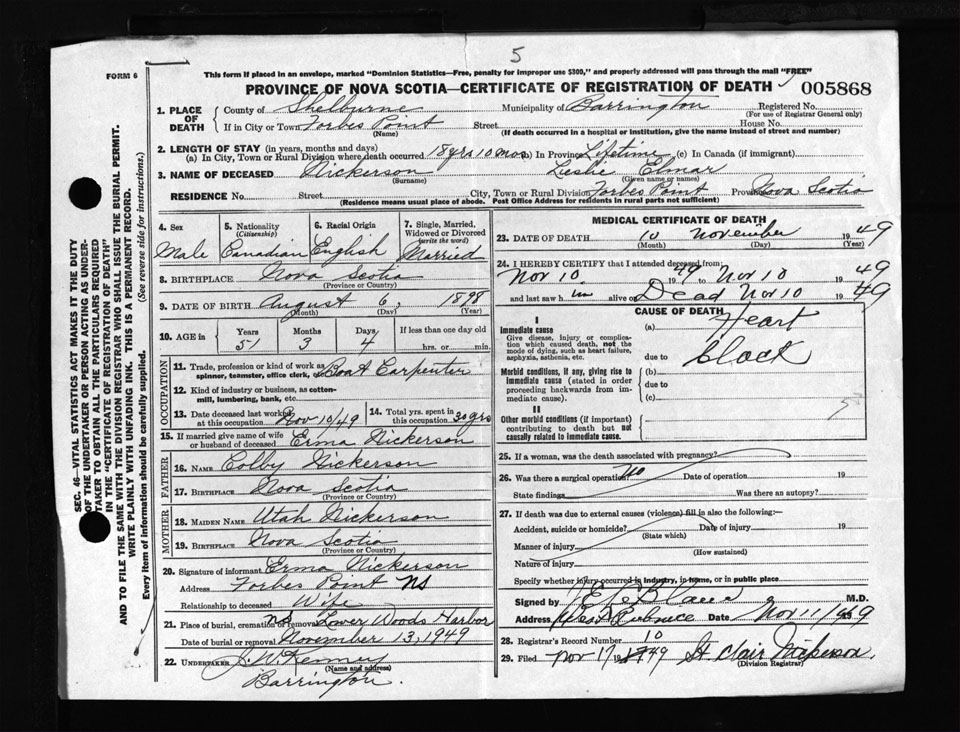 5
FORM 6
This form if placed in an envelope, marked "Dominion Statistics—Free, penalty for improper use $300," and properly addressed will pass through the mail "FREE"
PROVINCE OF NOVA SCOTIA—CERTIFICATE OF REGISTRATION OF DEATH
005868
1. PLACE OF DEATH
County of Shelburne Municipality of Barrington Registered No.
(For use of Registrar General only)
If in City or Town Forbes Point Street House No.
(Name) (If death occurred in a hospital or institution, give the name instead of street and number)
2. LENGTH OF STAY (in years, months and days)
(a) In City, Town or Rural Division where death occurred 18 yrs 10 mos (b) In Province Lifetime (c) In Canada (if immigrant)
3. NAME OF DECEASED Nickerson Leslie Elmar
(Surname) (Given name or names)
RESIDENCE No. Street City, Town or Rural Division Forbes Point Province Nova Scotia
(Residence means usual place of abode. Post Office Address for residents in rural parts not sufficient)
4. Sex 5. Nationality (Citizenship) 6. Racial Origin 7. Single, Married, Widowed or Divorced (write the word)
Male Canadian English Married
8. BIRTHPLACE Nova Scotia
(Province or Country)
9. DATE OF BIRTH August 6, 1898
(Month) (Day) (Year)
10. AGE in Years Months Days If less than one day old
51 3 4 hrs. or min.
OCCUPATION
11. Trade, profession or kind of work as spinner, teamster, office clerk, Boat Carpenter
12. Kind of industry or business, as cotton-mill, lumbering, bank, etc.
13. Date deceased last worked at this occupation Nov 10/49 14. Total yrs. spent in this occupation 30 yrs
15. If married give name of wife or husband of deceased Erma Nickerson
FATHER
16. NAME Colby Nickerson
17. BIRTHPLACE Nova Scotia
(Province or Country)
MOTHER
18. MAIDEN NAME Utah Nickerson
19. BIRTHPLACE Nova Scotia
(Province or Country)
20. Signature of informant Erma Nickerson
Address Forbes Point NS
Relationship to deceased Wife
21. Place of burial, cremation or removal NS Lower Woods Harbor
Date of burial or removal November 13, 1949
22. UNDERTAKER J. W. Kenney
(Name and address)
Barrington.
MEDICAL CERTIFICATE OF DEATH
23. DATE OF DEATH 10 November 1949
(Month) (Day) (Year)
24. I HEREBY CERTIFY that I attended deceased from:
Nov 10 1949 to Nov 10 1949
and last saw h im alive on Dead Nov 10 1949
CAUSE OF DEATH
I
Immediate cause
Give disease, injury or complication which caused death, not the mode of dying, such as heart failure, asphyxia, asthenia, etc.
(a) Heart
due to block
Morbid conditions, if any, giving rise to immediate cause (stated in order proceeding backwards from immediate cause).
(b)
due to
(c)
II
Other morbid conditions (if important) contributing to death but not causally related to immediate cause.
25. If a woman, was the death associated with pregnancy?
26. Was there a surgical operation? No Date of operation 19
State findings Was there an autopsy?
27. If death was due to external causes (violence) fill in also the following:—
Accident, suicide or homicide? Date of injury 19
(State which)
Manner of injury
(How sustained)
Nature of injury
Specify whether injury occurred in industry, in home, or in public place
Signed by M.D.
Address West Pubnico Date Nov 11/1949
28. Registrar's Record Number 10
29. Filed Nov 17 1949 St. Clair Nickerson.
(Division Registrar)
SEC. 46—VITAL STATISTICS ACT MAKES IT THE DUTY
OF THE UNDERTAKER OR PERSON ACTING AS UNDERTAKER TO OBTAIN ALL THE PARTICULARS REQUIRED
IN THE "CERTIFICATE OF REGISTRATION OF DEATH"
AND TO FILE THE SAME WITH THE DIVISION REGISTRAR WHO SHALL ISSUE THE BURIAL PERMIT.
WRITE PLAINLY WITH UNFADING INK. THIS IS A PERMANENT RECORD.
Every item of information should be carefully supplied. (See reverse side for instructions.)